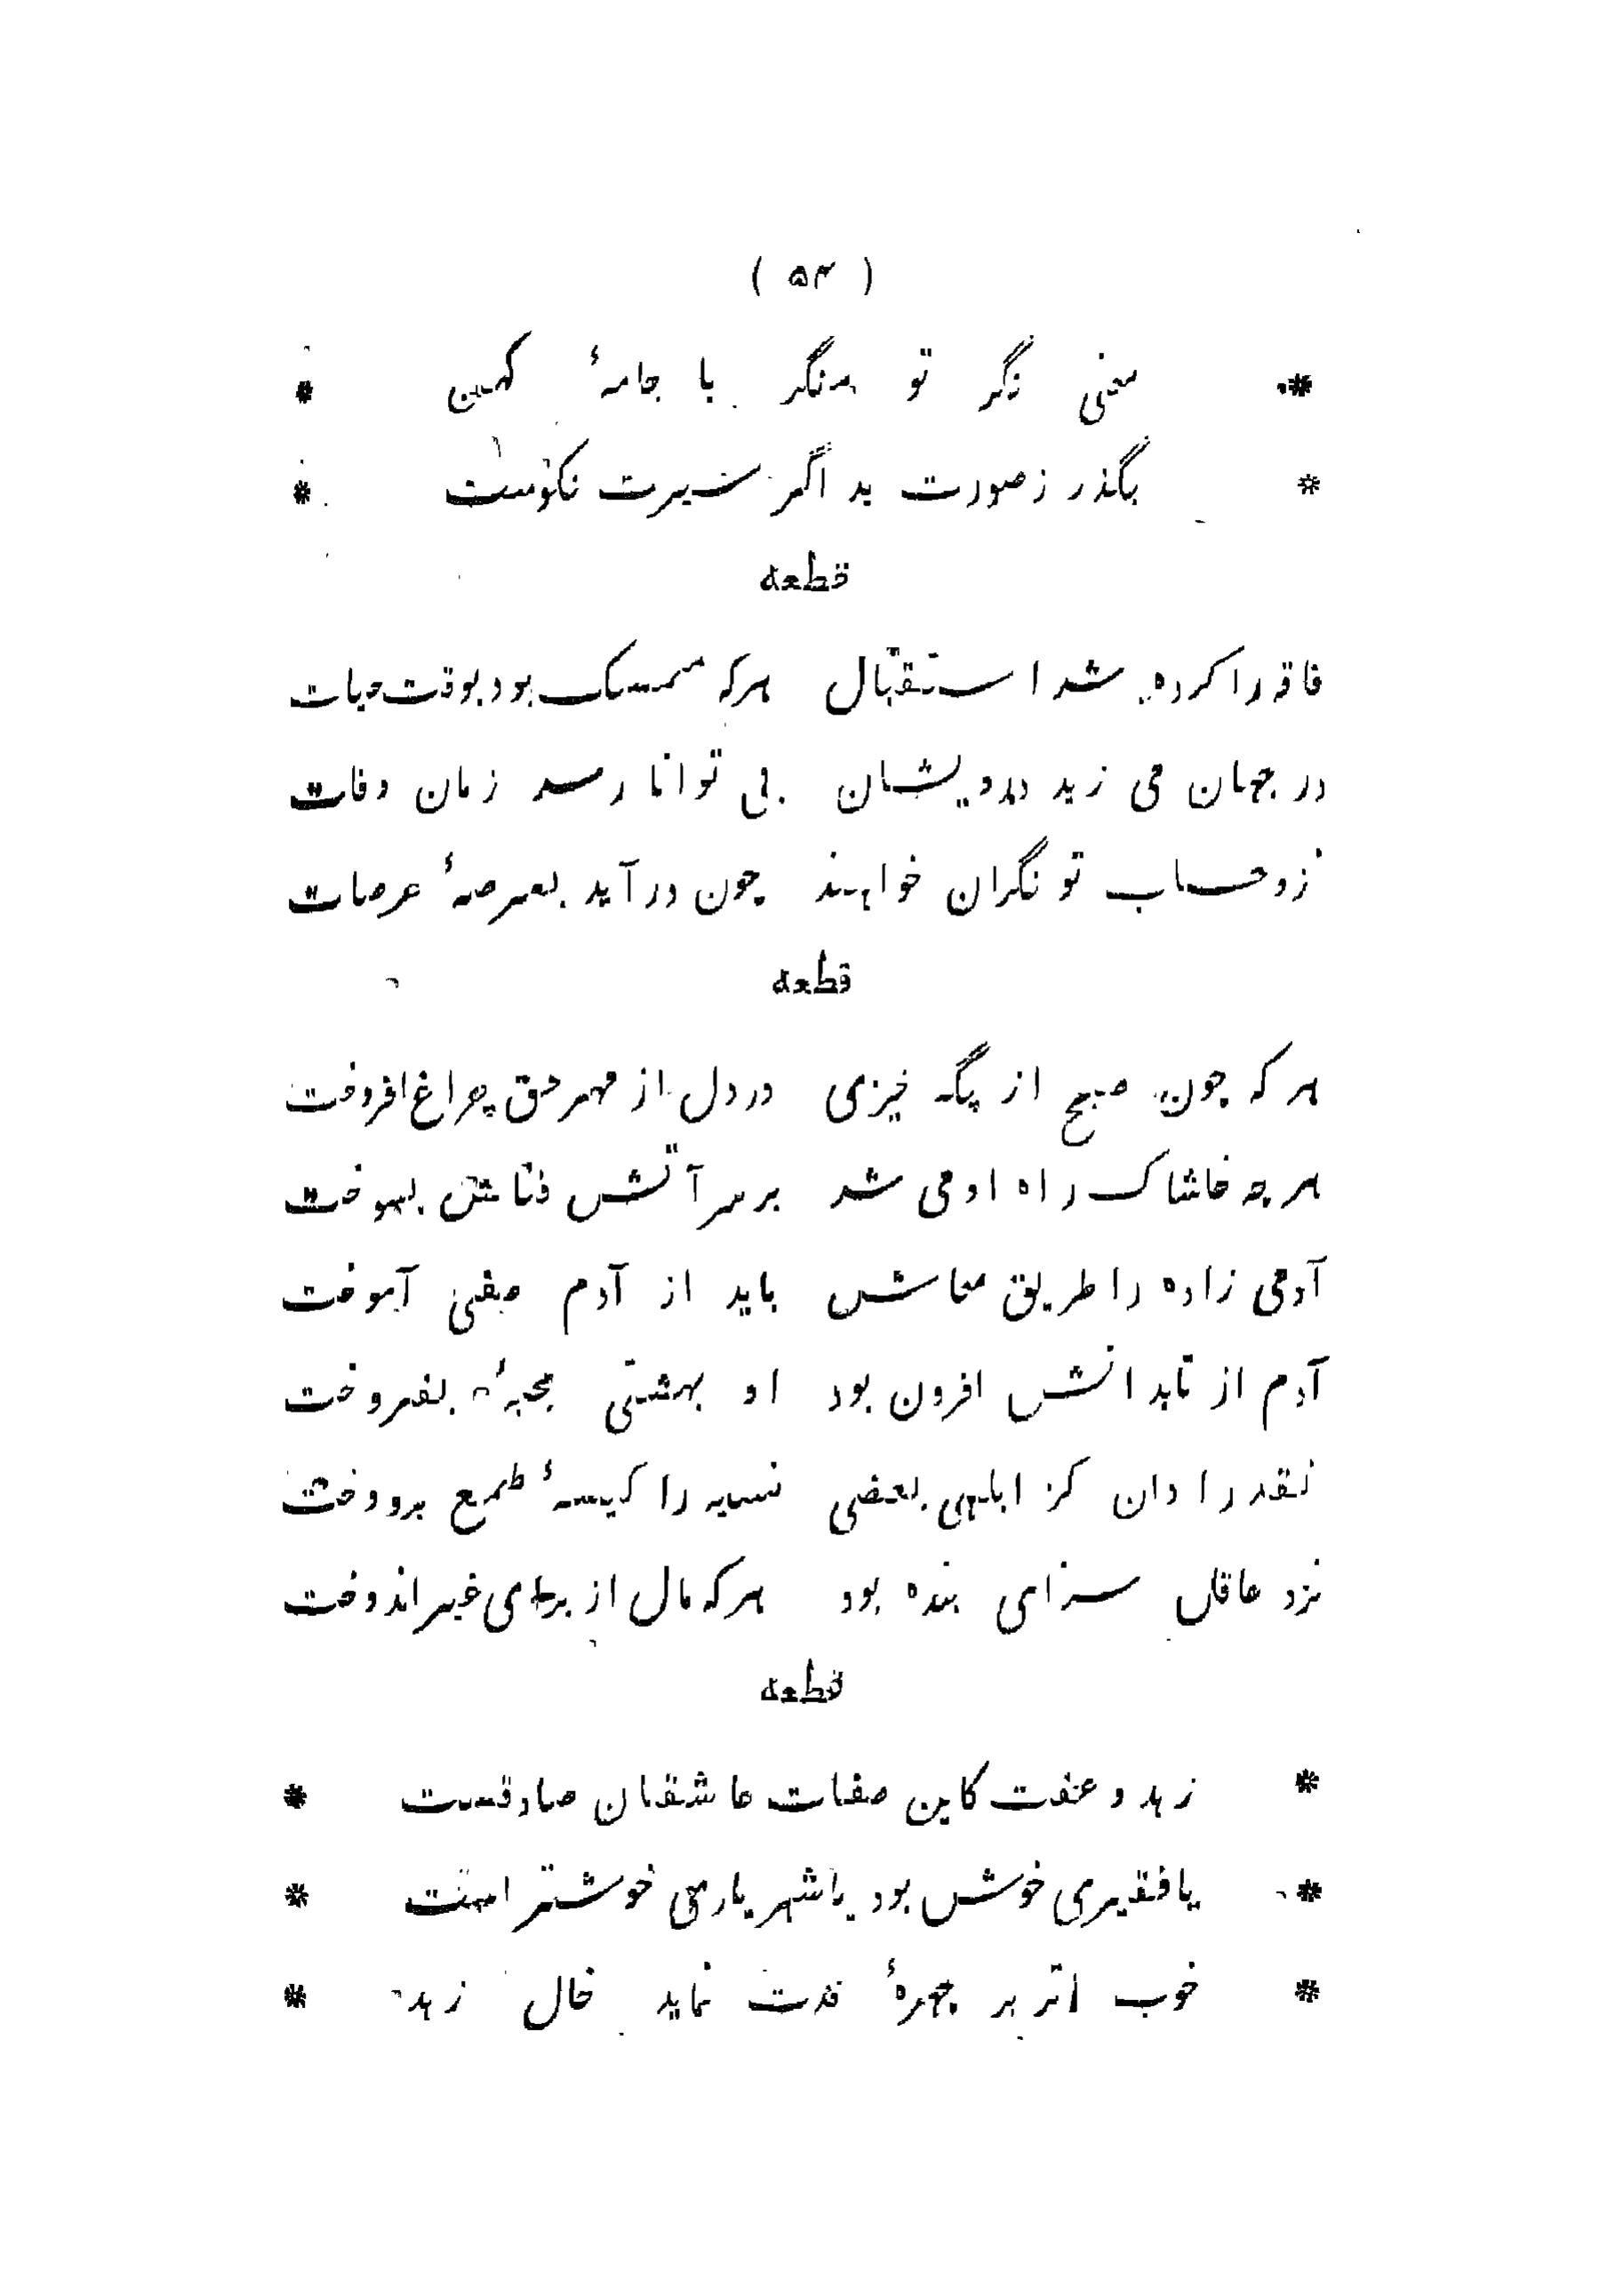 ( ۵۴ )
* معنی نگر تو منگر با جامهٔ کهن *
* بگذر ز صورت بد اگر سیرت نکوست *
قطعه
فاقه را کرده شد استقبال هر که ممسک بود بوقت حیات
در جهان می زید درویشان بی توانا رسد زمان وفات
زو حساب توانگران خواهند چون در آید بعرصهٔ عرصات
قطعه
هر که چون صبح از پگه خیزی در دل از مهر حق چراغ افروخت
هر چه خاشاک راه او می شد بر سر آتش فناش بسوخت
آدمی زاده را طریق معاش باید از آدم صفی آموخت
آدم از تا بدانش افزون بود او بهشتی بحبهٔ بفروخت
نقد را دان کز ابلهی بعضی نسیه را کیسهٔ طمع بر دوخت
نزد عاقل سزای بنده بود هر که مال از برای غیر اندوخت
قطعه
* زهد و عفت کاین صفات عاشقان صادقست *
* با فقیری خوش بود با شهریاری خوشتر است *
* خوب تر بر چهرهٔ نماید خال زهد *